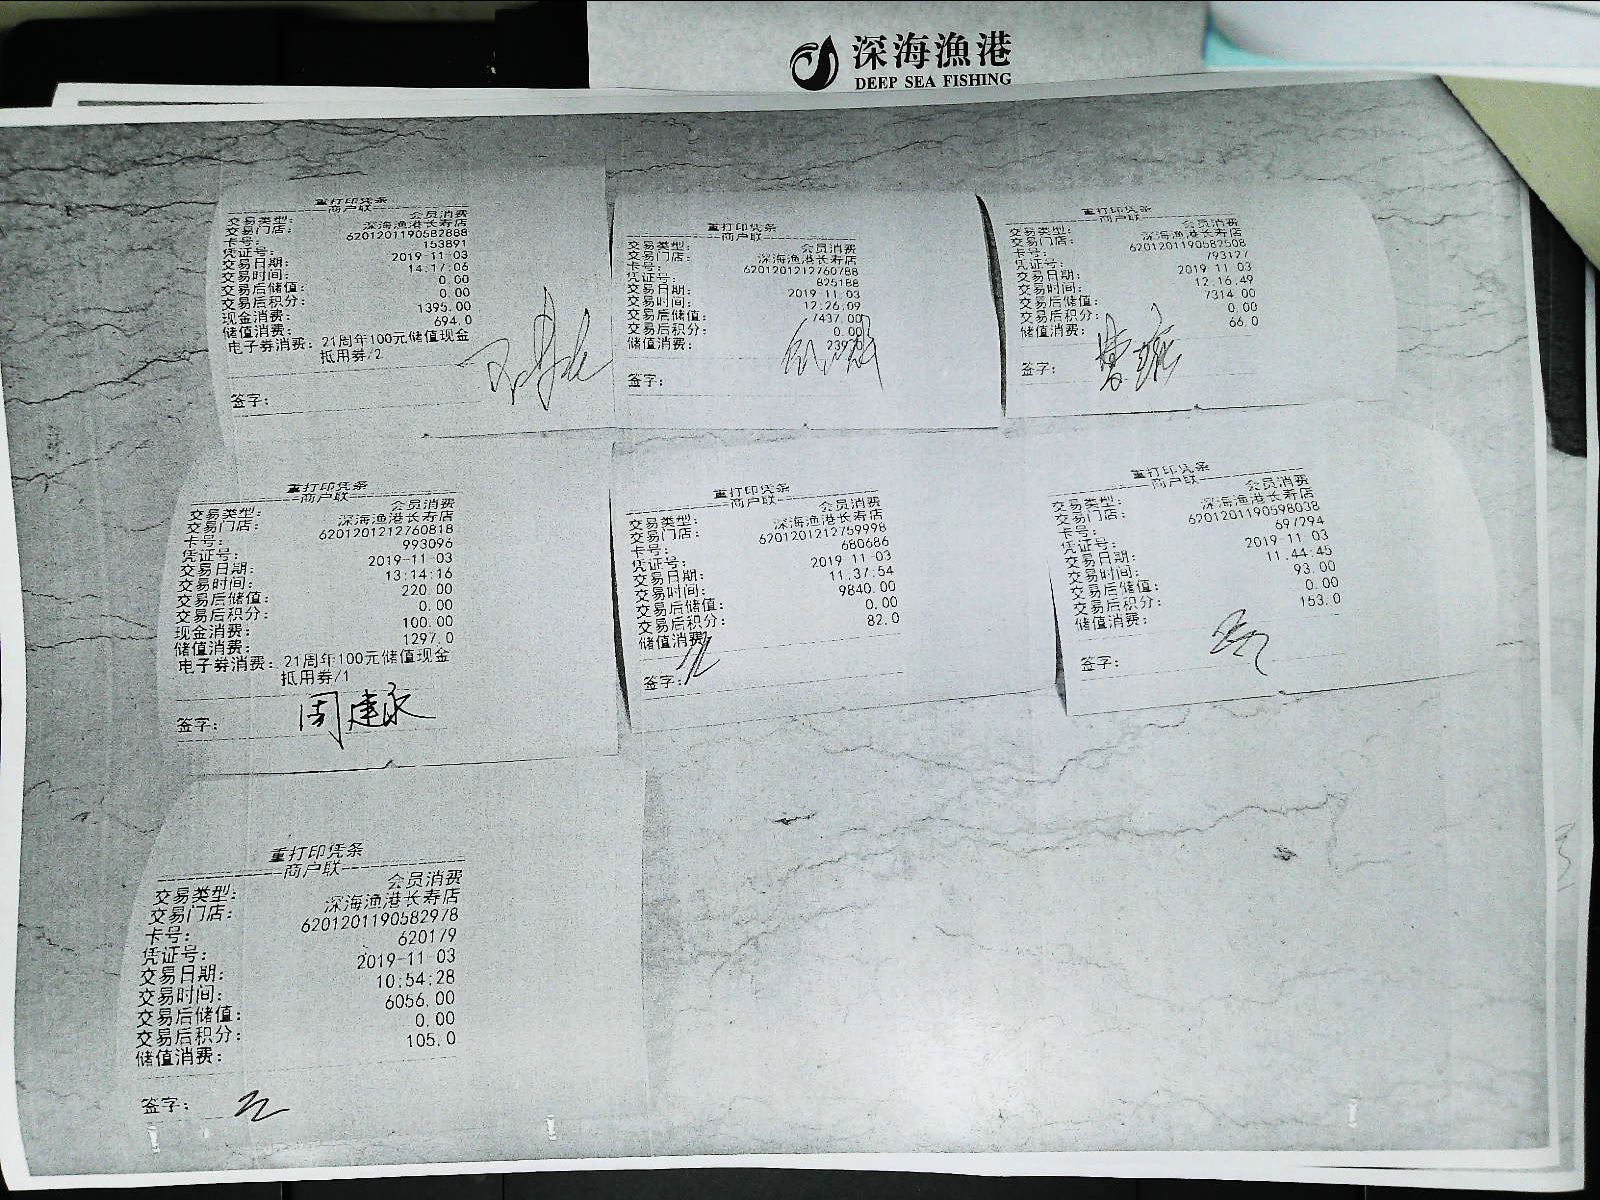 深海渔港
DEEP SEA FISHING
重打印凭条
商户联
交易类型: 会员消费
交易门店: 深海渔港长寿店
卡号: 6201201190582888
凭证号: 153891
交易日期: 2019-11-03
交易时间: 14:17:06
交易后储值: 0.00
交易后积分: 0.00
现金消费: 1395.00
储值消费: 694.0
电子券消费: 21周年100元储值现金
抵用券/2
签字:
重打印凭条
商户联
交易类型: 会员消费
交易门店: 深海渔港长寿店
卡号: 6201201212760788
凭证号: 825188
交易日期: 2019-11-03
交易时间: 12:26:09
交易后储值: 7437.00
交易后积分: 0.00
储值消费:
签字:
重打印凭条
商户联
交易类型: 会员消费
交易门店: 深海渔港长寿店
卡号: 6201201190582508
凭证号: 793127
交易日期: 2019-11-03
交易时间: 12:16:49
交易后储值: 7314.00
交易后积分: 0.00
储值消费: 66.0
签字:
重打印凭条
商户联
交易类型: 会员消费
交易门店: 深海渔港长寿店
卡号: 6201201212760818
凭证号: 993096
交易日期: 2019-11-03
交易时间: 13:14:16
交易后储值: 220.00
交易后积分: 0.00
现金消费: 100.00
储值消费: 1297.0
电子券消费: 21周年100元储值现金
抵用券/1
签字: 周建永
重打印凭条
商户联
交易类型: 会员消费
交易门店: 深海渔港长寿店
卡号: 6201201212759998
凭证号: 680686
交易日期: 2019-11-03
交易时间: 11:37:54
交易后储值: 9840.00
交易后积分: 0.00
储值消费: 82.0
签字:
重打印凭条
商户联
交易类型: 会员消费
交易门店: 深海渔港长寿店
卡号: 6201201190598038
凭证号: 697294
交易日期: 2019-11-03
交易时间: 11:44:45
交易后储值: 93.00
交易后积分: 0.00
储值消费: 153.0
签字:
重打印凭条
商户联
交易类型: 会员消费
交易门店: 深海渔港长寿店
卡号: 6201201190582978
凭证号: 620179
交易日期: 2019-11-03
交易时间: 10:54:28
交易后储值: 6056.00
交易后积分: 0.00
储值消费: 105.0
签字: